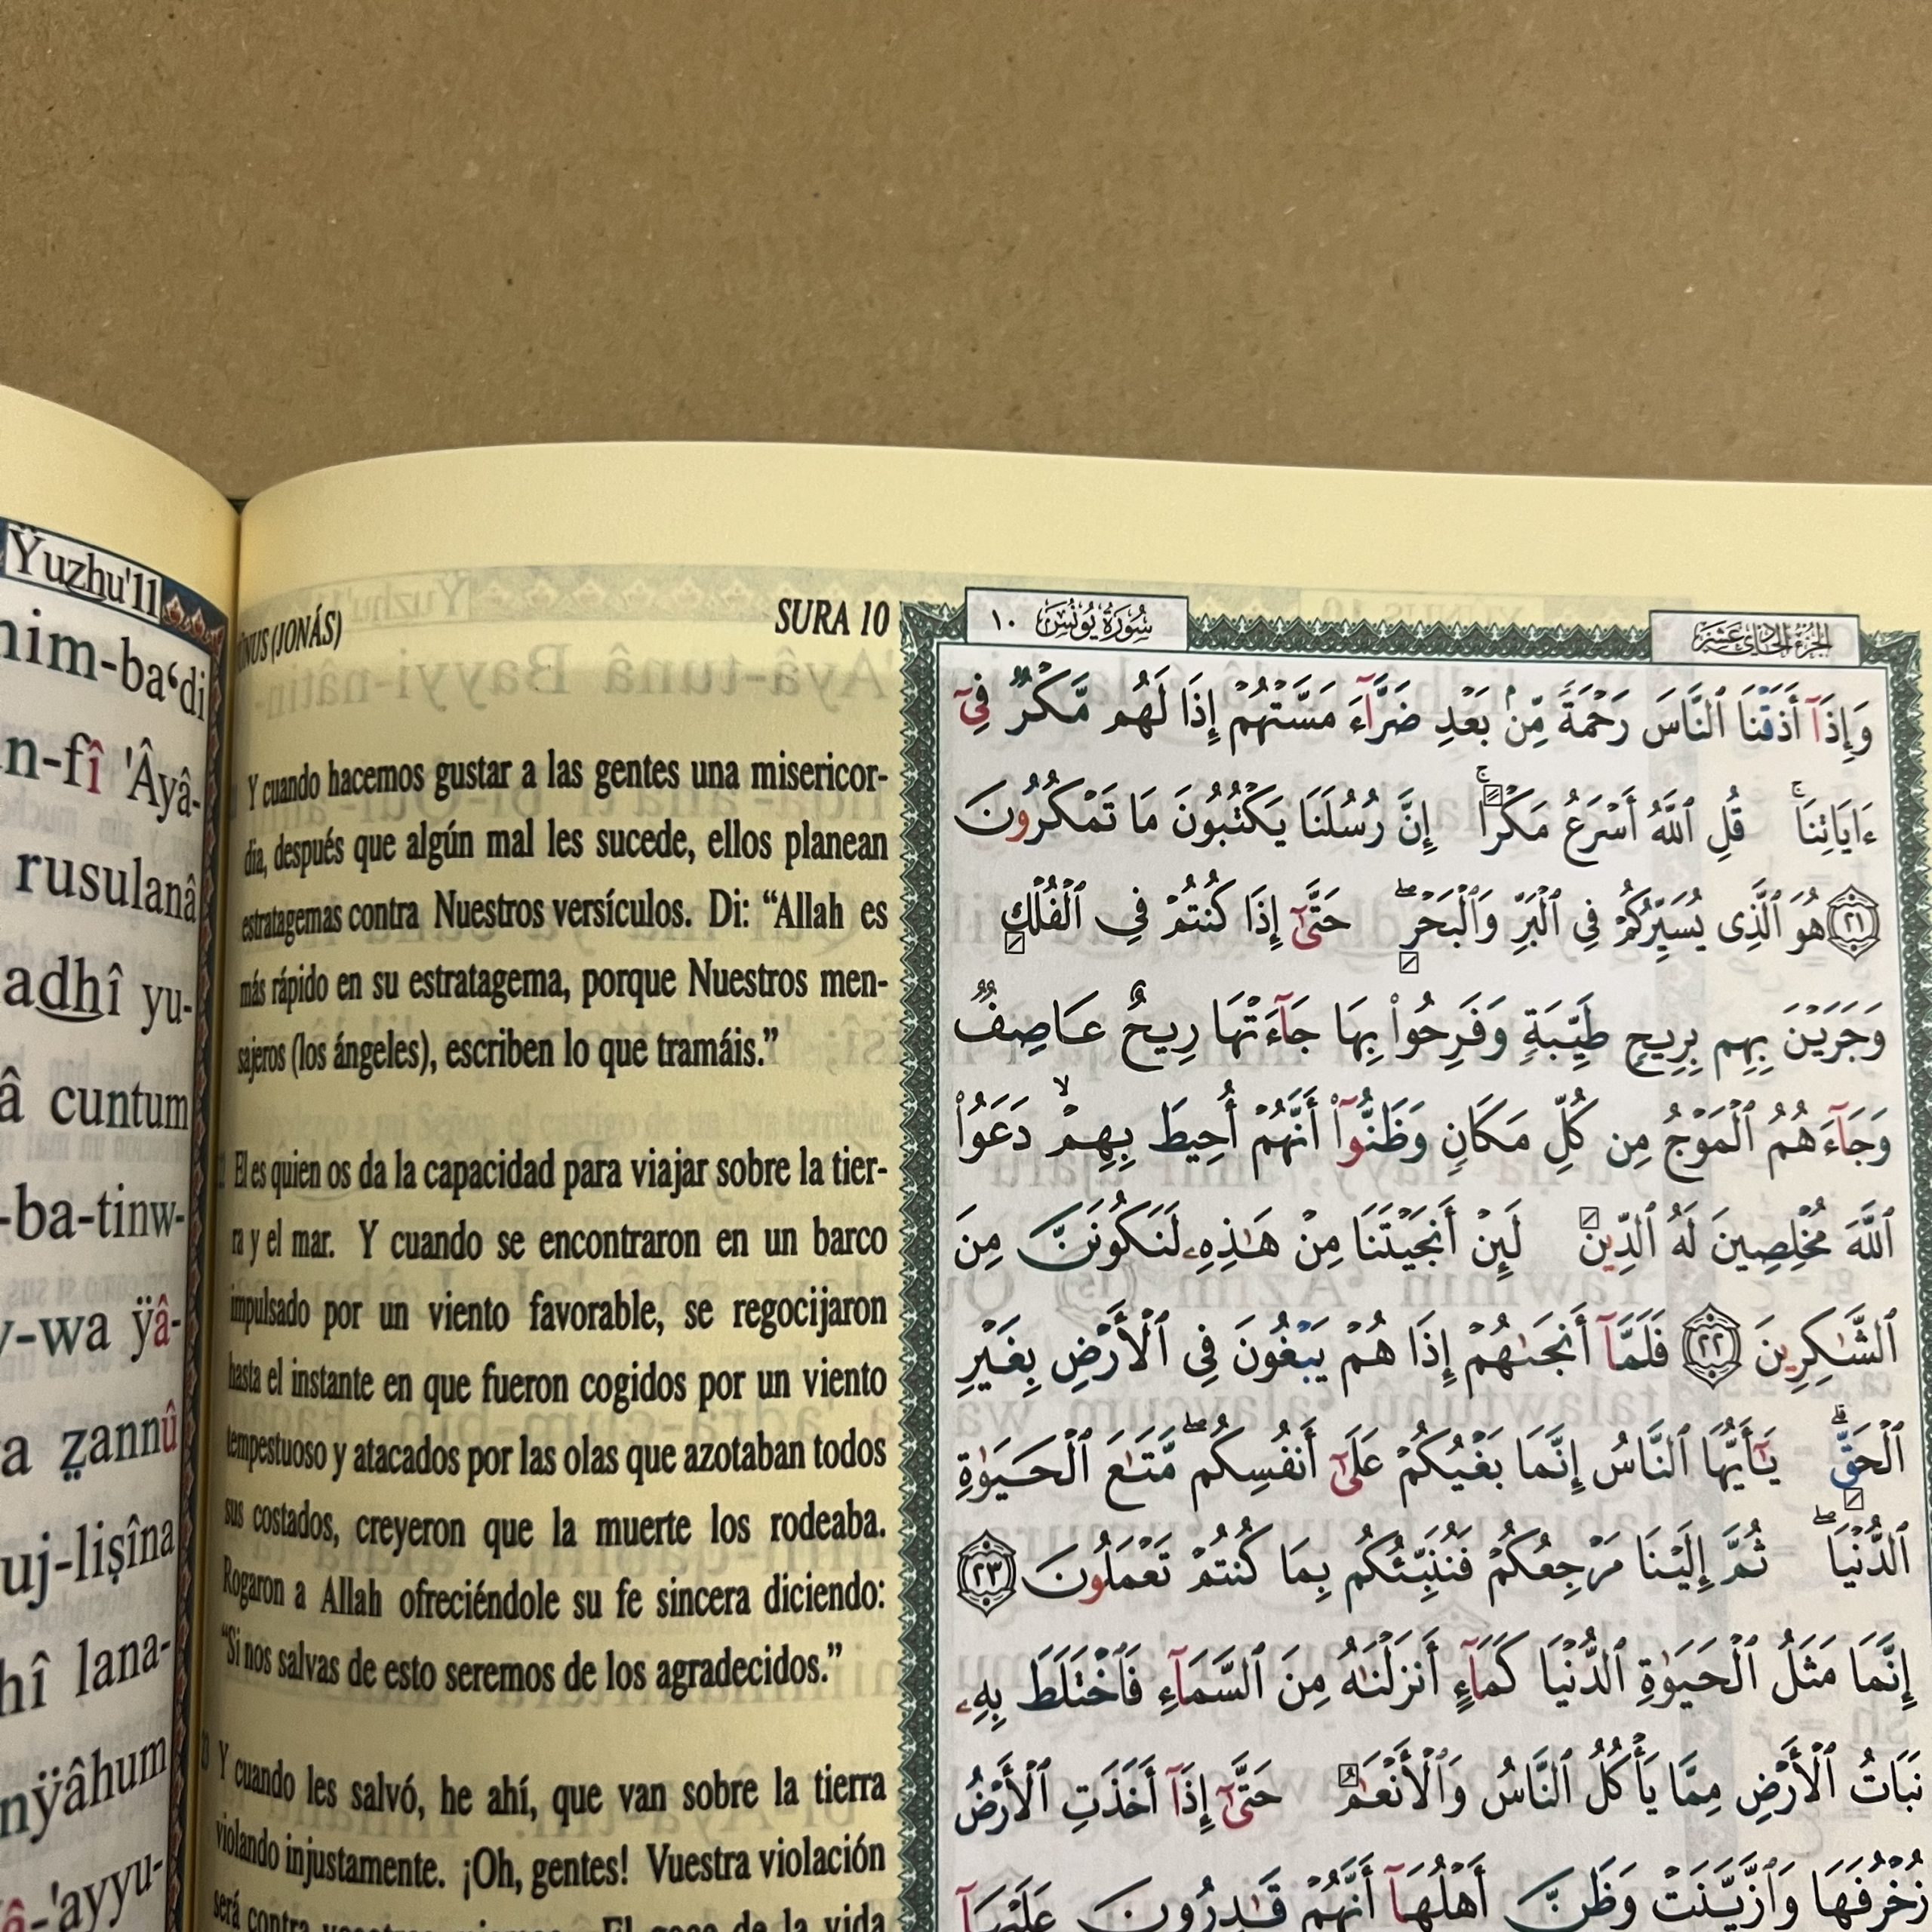 Yuzhu'11
him-ba‘di
n-fî 'Âyâ-
rusulanâ
adhî yu-
â cuntum
-ba-tinw-
y-wa ÿâ-
a zannû
uj-lisîna
hî lana-
nÿâhum
â-'ayyu-
ÛNUS (JONÁS) SURA 10
Y cuando hacemos gustar a las gentes una misericor-
dia, después que algún mal les sucede, ellos planean
estratagemas contra Nuestros versículos. Di: “Allah es
más rápido en su estratagema, porque Nuestros men-
sajeros (los ángeles), escriben lo que tramáis.”
El es quien os da la capacidad para viajar sobre la tier-
ra y el mar. Y cuando se encontraron en un barco
impulsado por un viento favorable, se regocijaron
hasta el instante en que fueron cogidos por un viento
tempestuoso y atacados por las olas que azotaban todos
sus costados, creyeron que la muerte los rodeaba.
Rogaron a Allah ofreciéndole su fe sincera diciendo:
“Si nos salvas de esto seremos de los agradecidos.”
Y cuando les salvó, he ahí, que van sobre la tierra
violando injustamente. ¡Oh, gentes! Vuestra violación
será contra vosotros mismos. El goce de la vida
الجزء الحادي عشر سُورَةُ يُونُسَ ١٠
وَإِذَآ أَذَقْنَا ٱلنَّاسَ رَحْمَةً مِّنۢ بَعْدِ ضَرَّآءَ مَسَّتْهُمْ إِذَا لَهُم مَّكْرٌ فِىٓ
ءَايَاتِنَاۚ قُلِ ٱللَّهُ أَسْرَعُ مَكْرًاۚ إِنَّ رُسُلَنَا يَكْتُبُونَ مَا تَمْكُرُونَ
﴿٢١﴾ هُوَ ٱلَّذِى يُسَيِّرُكُمْ فِى ٱلْبَرِّ وَٱلْبَحْرِۖ حَتَّىٰٓ إِذَا كُنتُمْ فِى ٱلْفُلْكِ
وَجَرَيْنَ بِهِم بِرِيحٍ طَيِّبَةٍ وَفَرِحُوا۟ بِهَا جَآءَتْهَا رِيحٌ عَاصِفٌ
وَجَآءَهُمُ ٱلْمَوْجُ مِن كُلِّ مَكَانٍ وَظَنُّوٓا۟ أَنَّهُمْ أُحِيطَ بِهِمْۙ دَعَوُا۟
ٱللَّهَ مُخْلِصِينَ لَهُ ٱلدِّينَ لَئِنْ أَنجَيْتَنَا مِنْ هَـٰذِهِۦ لَنَكُونَنَّ مِنَ
ٱلشَّـٰكِرِينَ ﴿٢٢﴾ فَلَمَّآ أَنجَىٰهُمْ إِذَا هُمْ يَبْغُونَ فِى ٱلْأَرْضِ بِغَيْرِ
ٱلْحَقِّۗ يَـٰٓأَيُّهَا ٱلنَّاسُ إِنَّمَا بَغْيُكُمْ عَلَىٰٓ أَنفُسِكُمۖ مَّتَـٰعَ ٱلْحَيَوٰةِ
ٱلدُّنْيَاۖ ثُمَّ إِلَيْنَا مَرْجِعُكُمْ فَنُنَبِّئُكُم بِمَا كُنتُمْ تَعْمَلُونَ ﴿٢٣﴾
إِنَّمَا مَثَلُ ٱلْحَيَوٰةِ ٱلدُّنْيَا كَمَآءٍ أَنزَلْنَـٰهُ مِنَ ٱلسَّمَآءِ فَٱخْتَلَطَ بِهِۦ
نَبَاتُ ٱلْأَرْضِ مِمَّا يَأْكُلُ ٱلنَّاسُ وَٱلْأَنْعَـٰمُ حَتَّىٰٓ إِذَآ أَخَذَتِ ٱلْأَرْضُ
زُخْرُفَهَا وَٱزَّيَّنَتْ وَظَنَّ أَهْلُهَآ أَنَّهُمْ قَـٰدِرُونَ عَلَيْهَآ